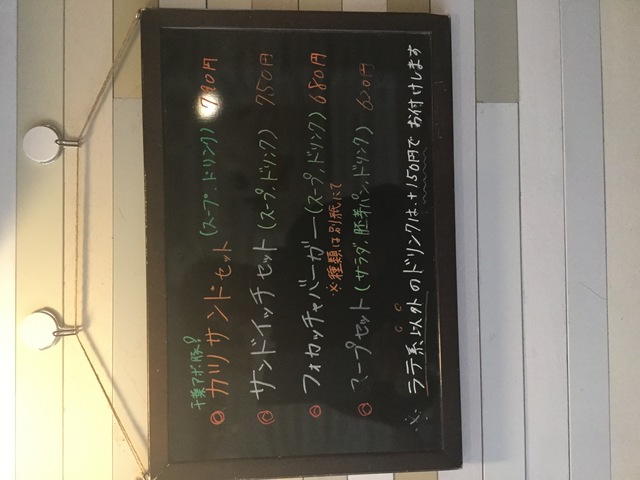 千葉アボ豚?
◎ カツサンドセット (スープ、ドリンク) 790円
◎ サンドイッチセット (スープ、ドリンク) 750円
◎ フォカッチャバーガー (スープ、ドリンク) 680円
※種類は別紙にて
◎ スープセット (サラダ、胚芽パン、ドリンク) 620円
※ ラテ系以外のドリンクは、+150円で お付けします